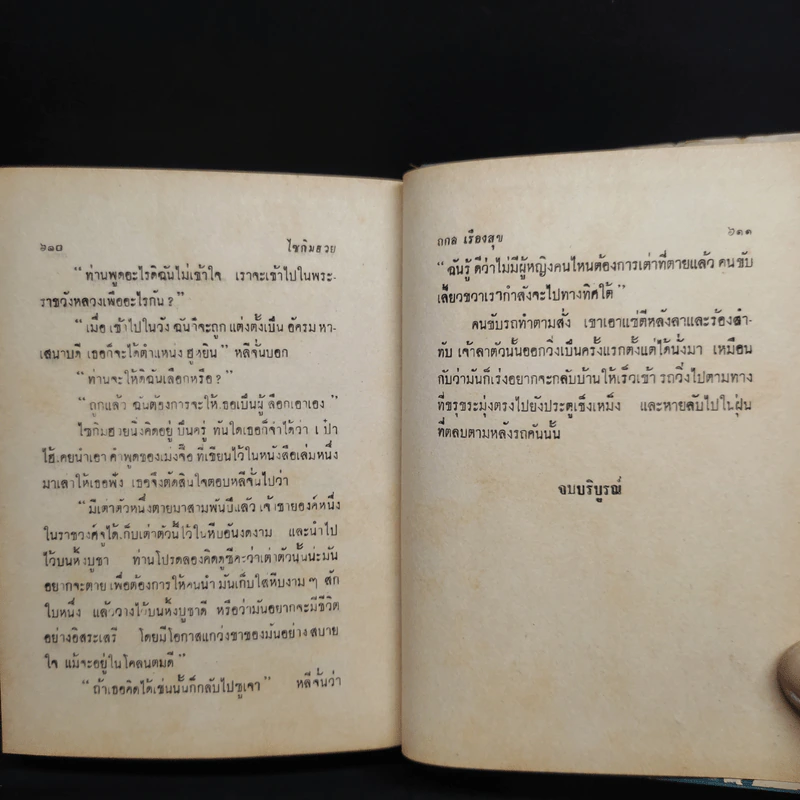 ๖๑๐ ไซกิมฮวย
“ท่านพูดอะไรดิฉันไม่เข้าใจ เราจะเข้าไปในพระ-
ราชวังหลวงเพื่ออะไรกัน?”
“เมื่อเข้าไปในวัง ฉันก็จะถูกแต่งตั้งเป็น อัครมหา-
เสนาบดี เธอก็จะได้ตำแหน่ง ฮูหยิน” หลีจั่นบอก
“ท่านจะให้ดิฉันเลือกหรือ?”
“ถูกแล้ว ฉันต้องการจะให้เธอเป็นผู้เลือกเอาเอง”
ไซกิมฮวยนิ่งคิดอยู่เป็นครู่ ทันใดเธอก็จำได้ว่า เป๋า
ไฮ้เคยนำเอาคำพูดของเม่งจื๊อ ที่เขียนไว้ในหนังสือเล่มหนึ่ง
มาเล่าให้เธอฟัง เธอจึงตัดสินใจตอบหลีจั่นไปว่า
“มีเต่าตัวหนึ่งตายมาสามพันปีแล้ว เจ้าชายองค์หนึ่ง
ในราชวงศ์จูได้เก็บเต่าตัวนี้ไว้ในหีบอันงดงาม และนำไป
ไว้บนหิ้งบูชา ท่านโปรดลองคิดดูซีคะว่าเต่าตัวนั้นน่ะมัน
อยากจะตาย เพื่อต้องการให้คนนำมันเก็บใส่หีบงาม ๆ สัก
ใบหนึ่ง แล้ววางไว้บนหิ้งบูชาดี หรือว่ามันอยากจะมีชีวิต
อย่างอิสระเสรี โดยมีโอกาสแกว่งขาของมันอย่างสบาย
ใจ แม้จะอยู่ในโคลนตมดี”
“ถ้าเธอคิดได้เช่นนั้นก็กลับไปซูเจา” หลีจั่นว่า
ถกล เรืองสุข ๖๑๑
“ฉันรู้ดีว่าไม่มีผู้หญิงคนไหนต้องการเต่าที่ตายแล้ว คนขับ
เลี้ยวขวาเรากำลังจะไปทางทิศใต้”
คนขับรถทำตามสั่ง เขาเอาแซ่ตีหลังลาและร้องสำ-
ทับ เจ้าลาตัวนั้นออกวิ่งเป็นครั้งแรกตั้งแต่ได้นั่งมา เหมือน
กับว่ามันก็เร่งอยากจะกลับบ้านให้เร็วเข้า รถวิ่งไปตามทาง
ที่ขรุขระมุ่งตรงไปยังประตูเช็งเหม็ง และหายลับไปในฝุ่น
ที่ตลบตามหลังรถคันนั้น
จบบริบูรณ์